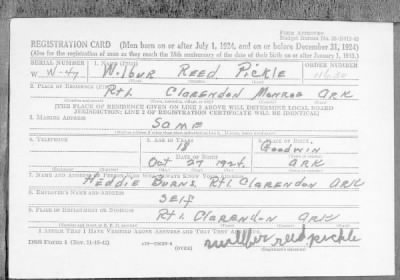 FORM APPROVED
REGISTRATION CARD (Men born on or after July 1, 1924, and on or before December 31, 1924)
(Also for the registration of men as they reach the 18th anniversary of the date of their birth on or after January 1, 1925.)
SERIAL NUMBER 1. NAME (Print) ORDER NUMBER
W W-47 Wilbur Reed Pickle
2. PLACE OF RESIDENCE (Print)
Rt1 Clarendon Monroe Ark
[THE PLACE OF RESIDENCE GIVEN ON LINE 2 ABOVE WILL DETERMINE LOCAL BOARD
JURISDICTION; LINE 2 OF REGISTRATION CERTIFICATE WILL BE IDENTICAL]
3. MAILING ADDRESS
Same
4. TELEPHONE 5. AGE IN YEARS 6. PLACE OF BIRTH
18 Goodwin
DATE OF BIRTH
Oct 27 1924 Ark
7. NAME AND ADDRESS OF PERSON WHO WILL ALWAYS KNOW YOUR ADDRESS
Heddie Burns, Rt1 Clarendon Ark
8. EMPLOYER'S NAME AND ADDRESS
Self
9. PLACE OF EMPLOYMENT OR BUSINESS
Rt1 Clarendon Ark
I AFFIRM THAT I HAVE VERIFIED ABOVE ANSWERS AND THAT THEY ARE TRUE.
DSS Form 1
(OVER)